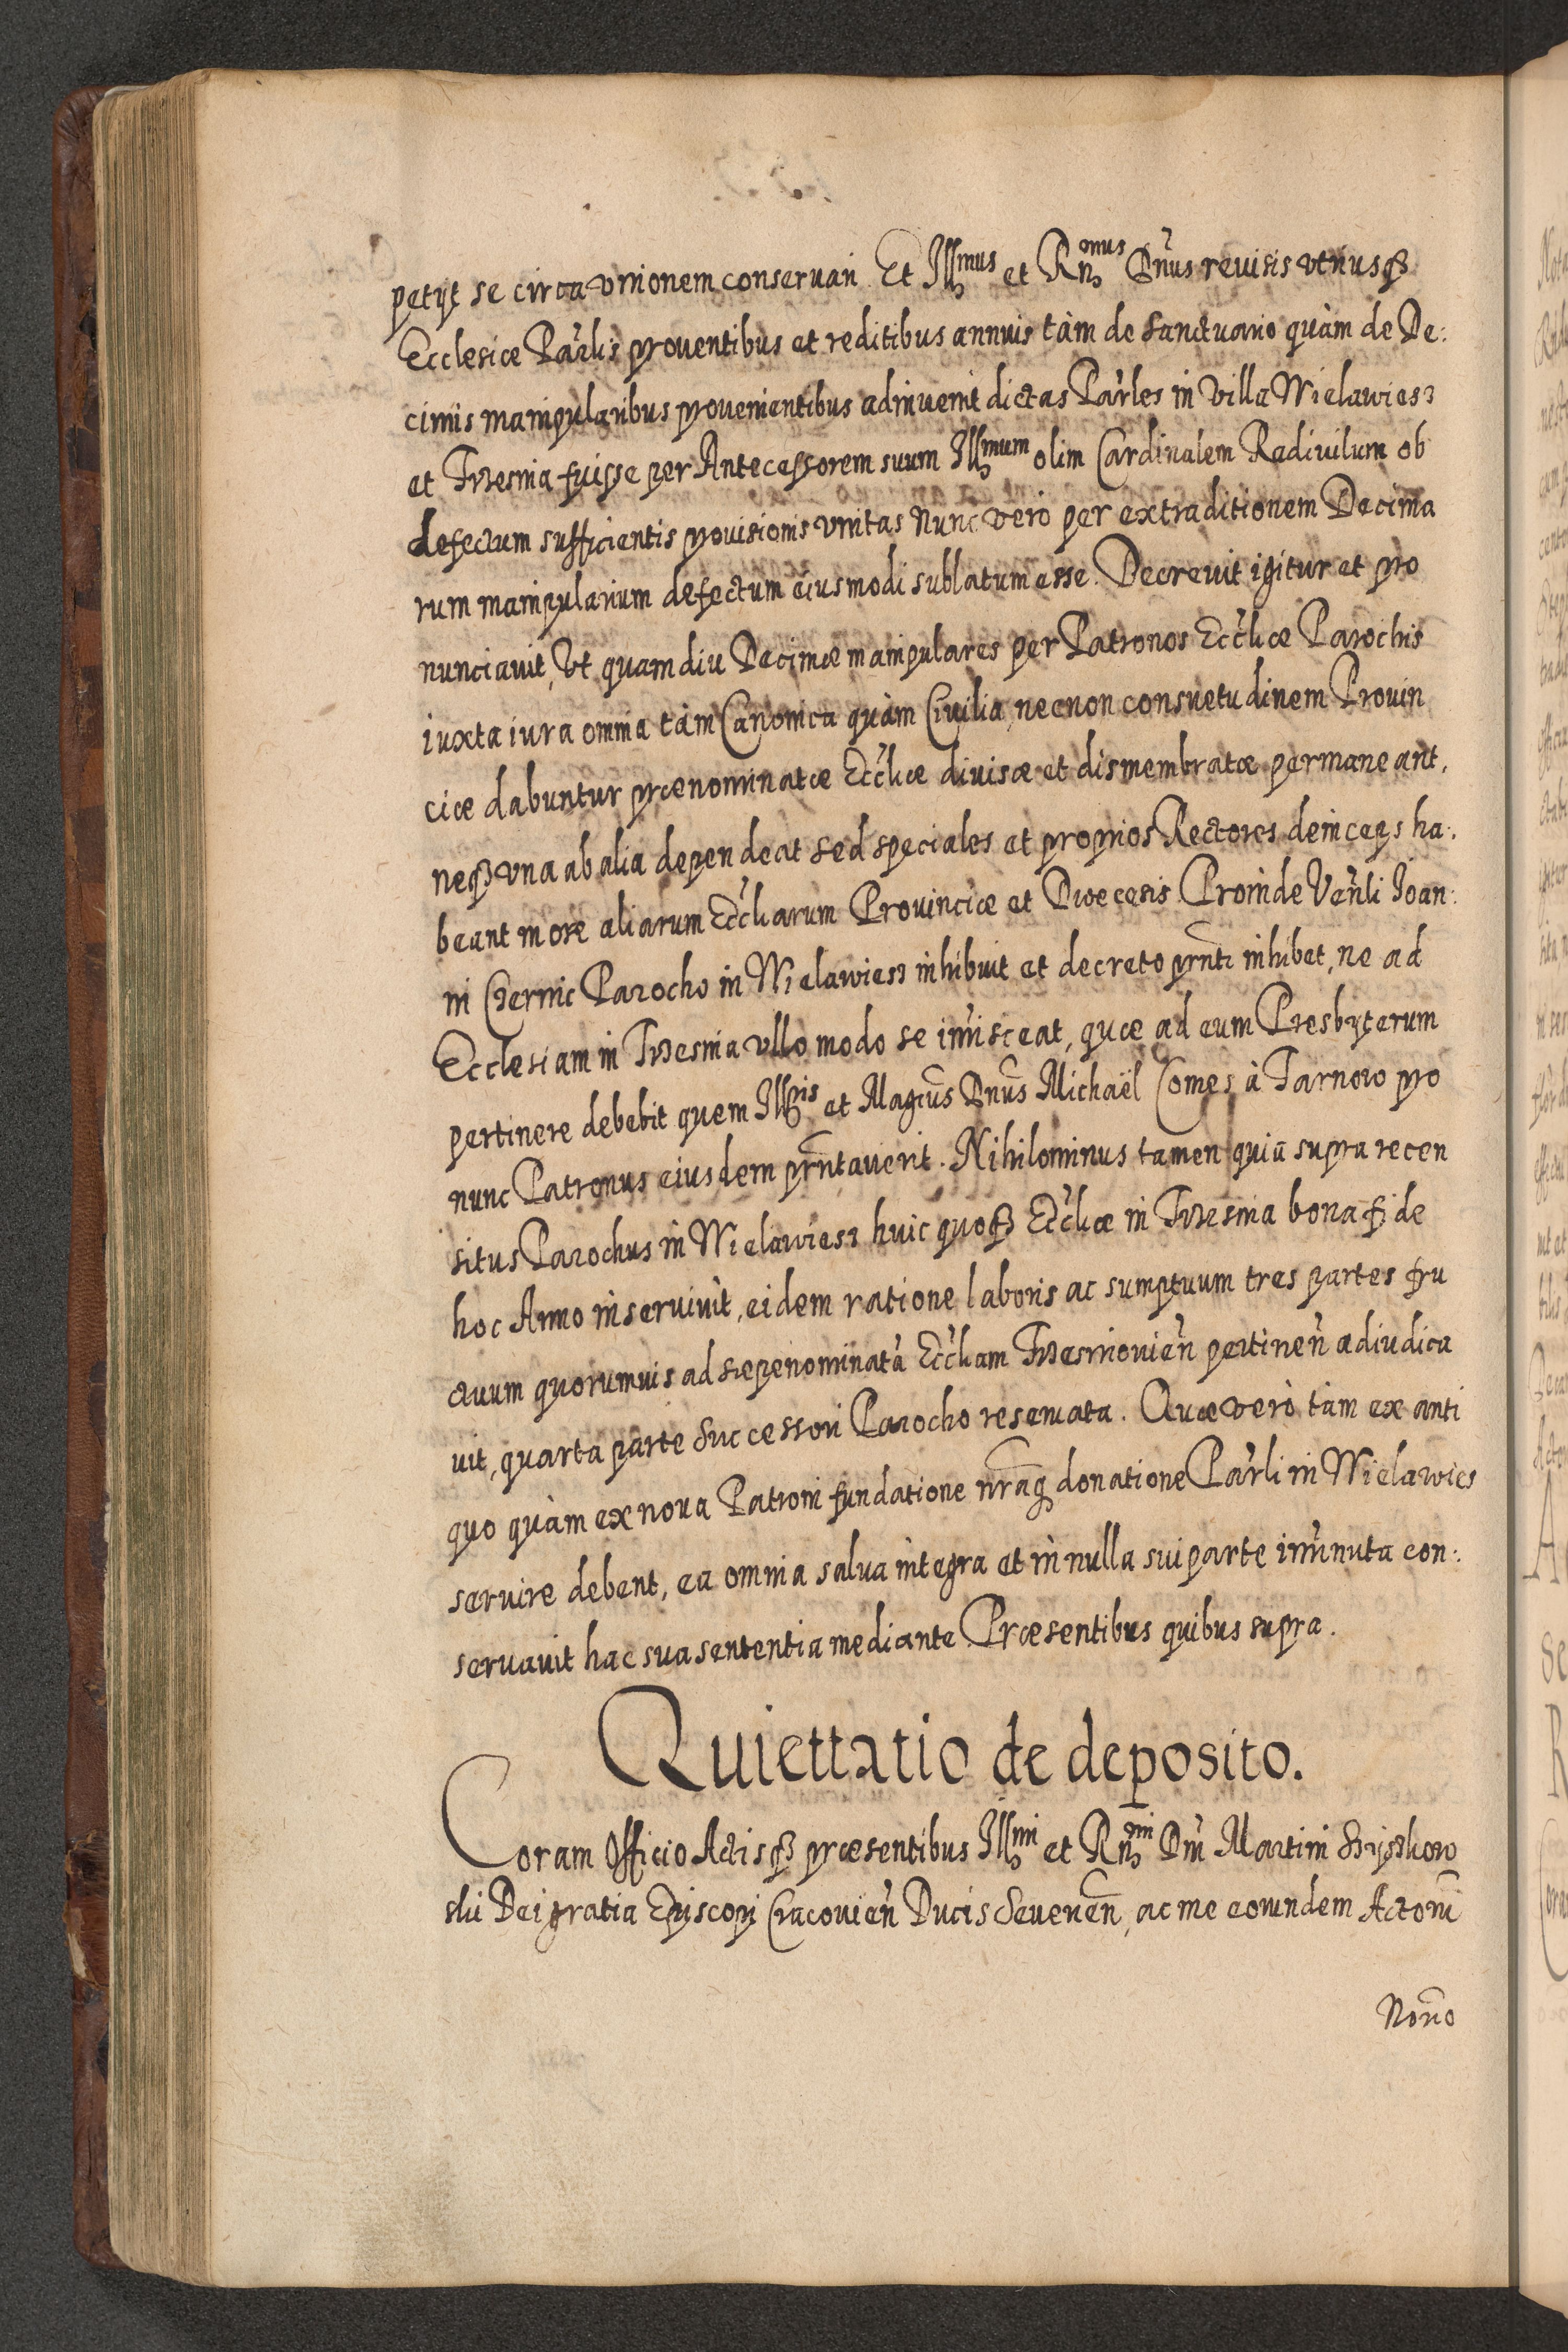 petijt se circa vnionem conseruari. Et Illmus et Rnomus Dn̄us reuisis vtriusq₃
Ecclesiæ Pār̄lis prouentibus et reditibus annuis tàm de Sanctuario quàm de De:
cimis manipularibus prouenientibus adinuenit dictas Pār̄les in Villa Wielawiesz
et Trzesnia fuisse per Antecessorem suum Illmum olim Cardinalem Radiuilum ob
defectum sufficientis prouisionis vnitas Nunc vero per extraditionem Decima
rum manipularium defectum eiusmodi sublatum esse. Decreuit igitur et pro
nunciauit, Vt quamdiu Decimæ manipulares per Patronos Ecc̄liæ Parochis
iuxta iura omnia tàm Canonica quàm Ciuilia, necnon consuetudinem Prouin
ciæ dabuntur prænominatæ Ecc̄liæ diuisæ et dismembratæ permaneant,
neq₃ vna ab alia dependeat sed speciales et proprios Rectores deinceps ha:
beant more aliarum Ecc̄liarum Prouinciæ et Diœcesis. Proinde Ven̄li Ioan:
ni Czernic Parocho in Wielawiesz inhibuit et decreto prn̄ti inhibet, ne ad
Ecclesiam in Trzesnia vllo modo se im̄isceat, quæ ad eum Presbyterum
pertinere debebit quem Illris et Magcus Dn̄us Michaël Comes à Tarnow pro
nunc Patronus eiusdem prn̄tauerit. Nihilominus tamen quia supra recen
situs Parochus in Wielawiesz huic quoq₃ Ecc̄liæ in Trzesnia bona fide
hoc Anno inseruiuit, eidem ratione laboris ac sumptuum tres partes fru
ctuum quorumuis ad sæpenominatā Ecc̄liam Trzesniouien̄ pertinen̄ adiudica
uit, quarta parte Successori Parocho reseruata. Quæ verò tàm ex anti
quo quàm ex noua Patroni fundatione nrāq donatione Pār̄li in Wielawies
seruire debent, ea omnia salua integra et in nulla sui parte im̄inuta con:
seruauit hac sua sententia mediante. Præsentibus quibus supra.
Quiettatio de deposito.
Coram Officio Actisq₃ præsentibus Illmi et Rnomi Dn̄i Martini Szyszkow
ski Dei gratia Episcopi Cracouien̄ Ducis Seuerien̄, ac me eorundem Actorū
Norīo